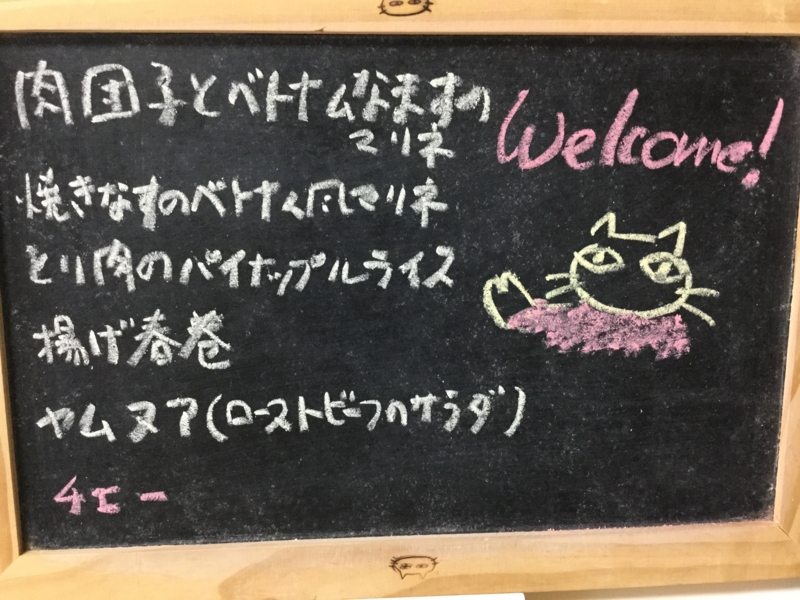 肉団子とベトナムなますの
マリネ
Welcome!
焼きなすのベトナム風マリネ
とり肉のパイナップルライス
揚げ春巻
ヤムヌア(ローストビーフのサラダ)
チェー